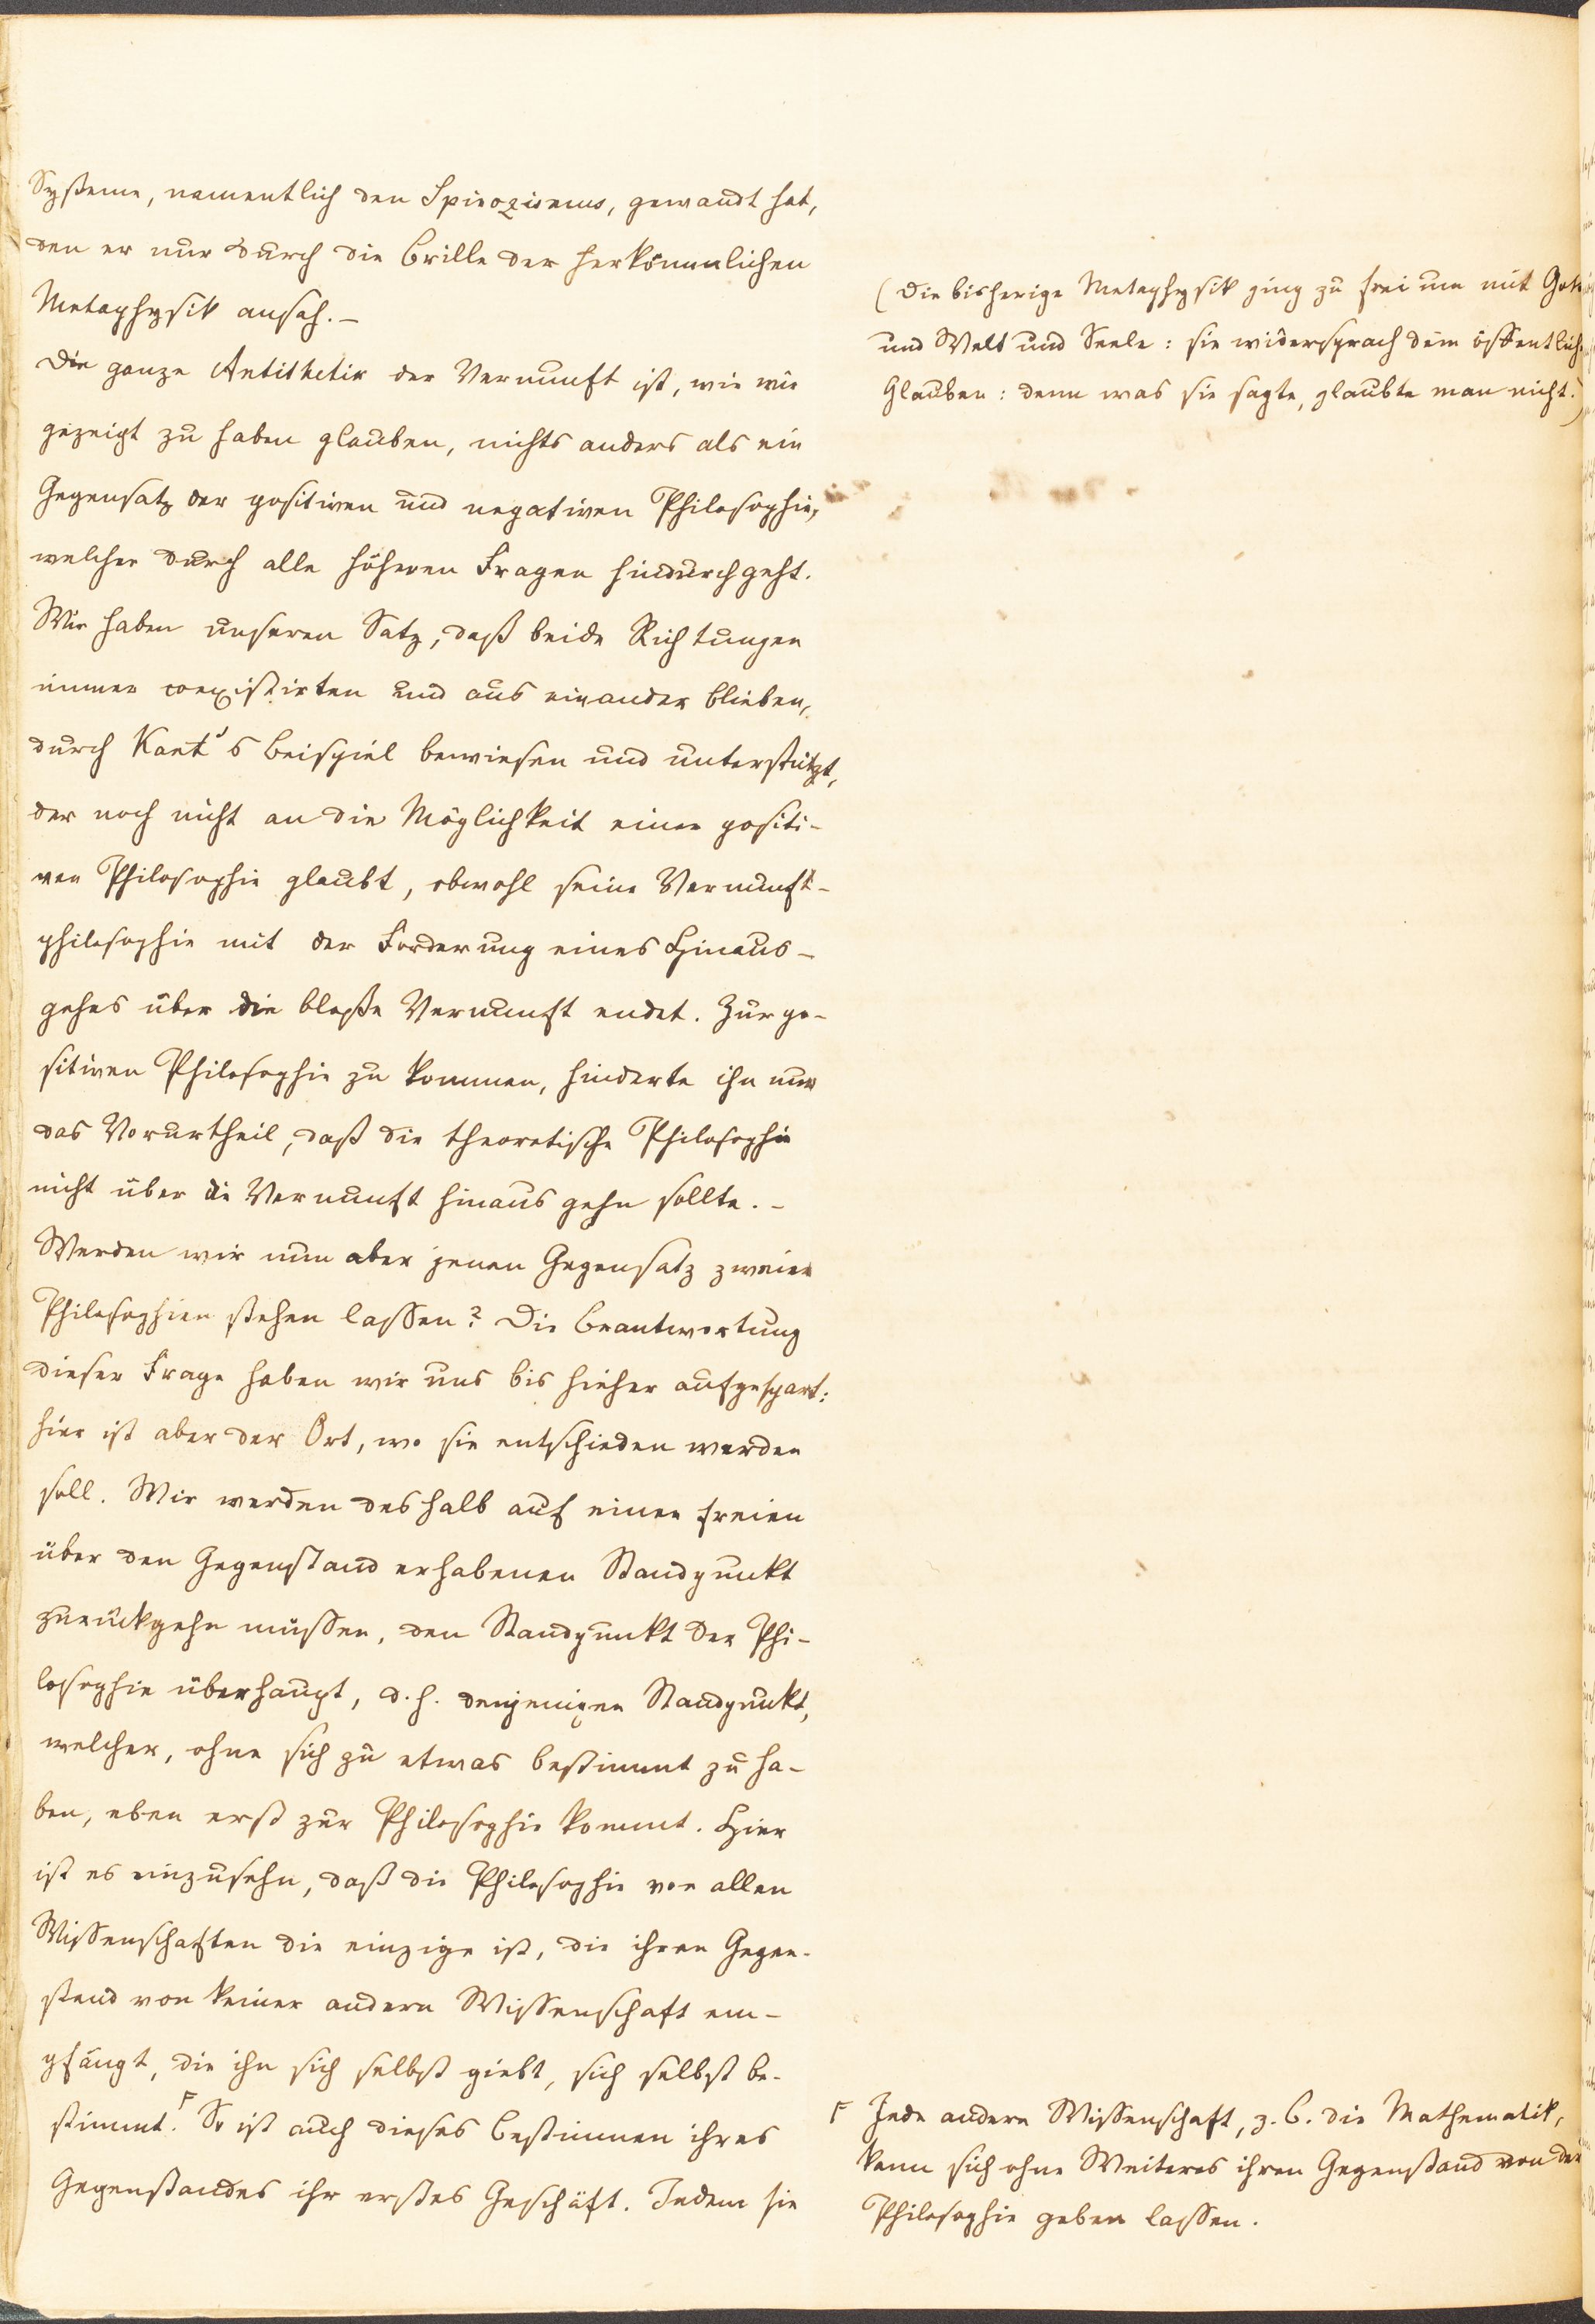 Systeme, namentlich den Spinozismus, gewandt hat,
den er nur durch die Brille der herkömmlichen
Metaphysik ansah. –
Die ganze Antithetik der Vernunft ist, wie wir
gezeigt zu haben glauben, nichts anders als ein
Gegensatz der positiven und negativen Philosophie,
welcher durch alle höheren Fragen hindurchgeht.
Wir haben unseren Satz, daß beide Richtungen
immer coexistirten und aus einander blieben,
durch Kant's Beispiel bewiesen und unterstützt,
der noch nicht an die Möglichkeit einer positi-
ven Philosophie glaubt, obwohl seine Vernunft-
philosophie mit der Forderung eines Hinaus-
gehns über die bloße Vernunft endet. Zur po-
sitiven Philosophie zu kommen, hinderte ihn nur
das Vorurtheil, daß die theoretische Philosophie
nicht über die Vernunft hinaus gehn sollte. –
Werden wir nun aber jenen Gegensatz zweier
Philosophien stehen lassen? Die Beantwortung
dieser Frage haben wir uns bis hieher aufgespart:
hier ist aber der Ort, wo sie entschieden werden
soll. Wir werden deshalb auf einen freien
über den Gegenstand erhabenen Standpunkt
zurückgehn müssen, den Standpunkt der Phi-
losophie überhaupt, d. h. denjenigen Standpunkt,
welcher, ohne sich zu etwas bestimmt zu ha-
ben, eben erst zur Philosophie kommt. Hier
ist es einzusehn, daß die Philosophie von allen
Wissenschaften die einzige ist, die ihren Gegen-
stand von keiner andern Wissenschaft em-
pfängt, die ihn sich selbst giebt, sich selbst be-
stimmt.Γ So ist auch dieses Bestimmen ihres
Gegenstandes ihr erstes Geschäft. Indem sie
(Die bisherige Metaphysik ging zu frei um mit Gott
und Welt und Seele: sie widersprach dem öffentlichen
Glauben: denn was sie sagte, glaubte man nicht.)
Γ Jede andere Wissenschaft, z. B. die Mathematik,
kann sich ohne Weiteres ihren Gegenstand von der
Philosophie geben lassen.